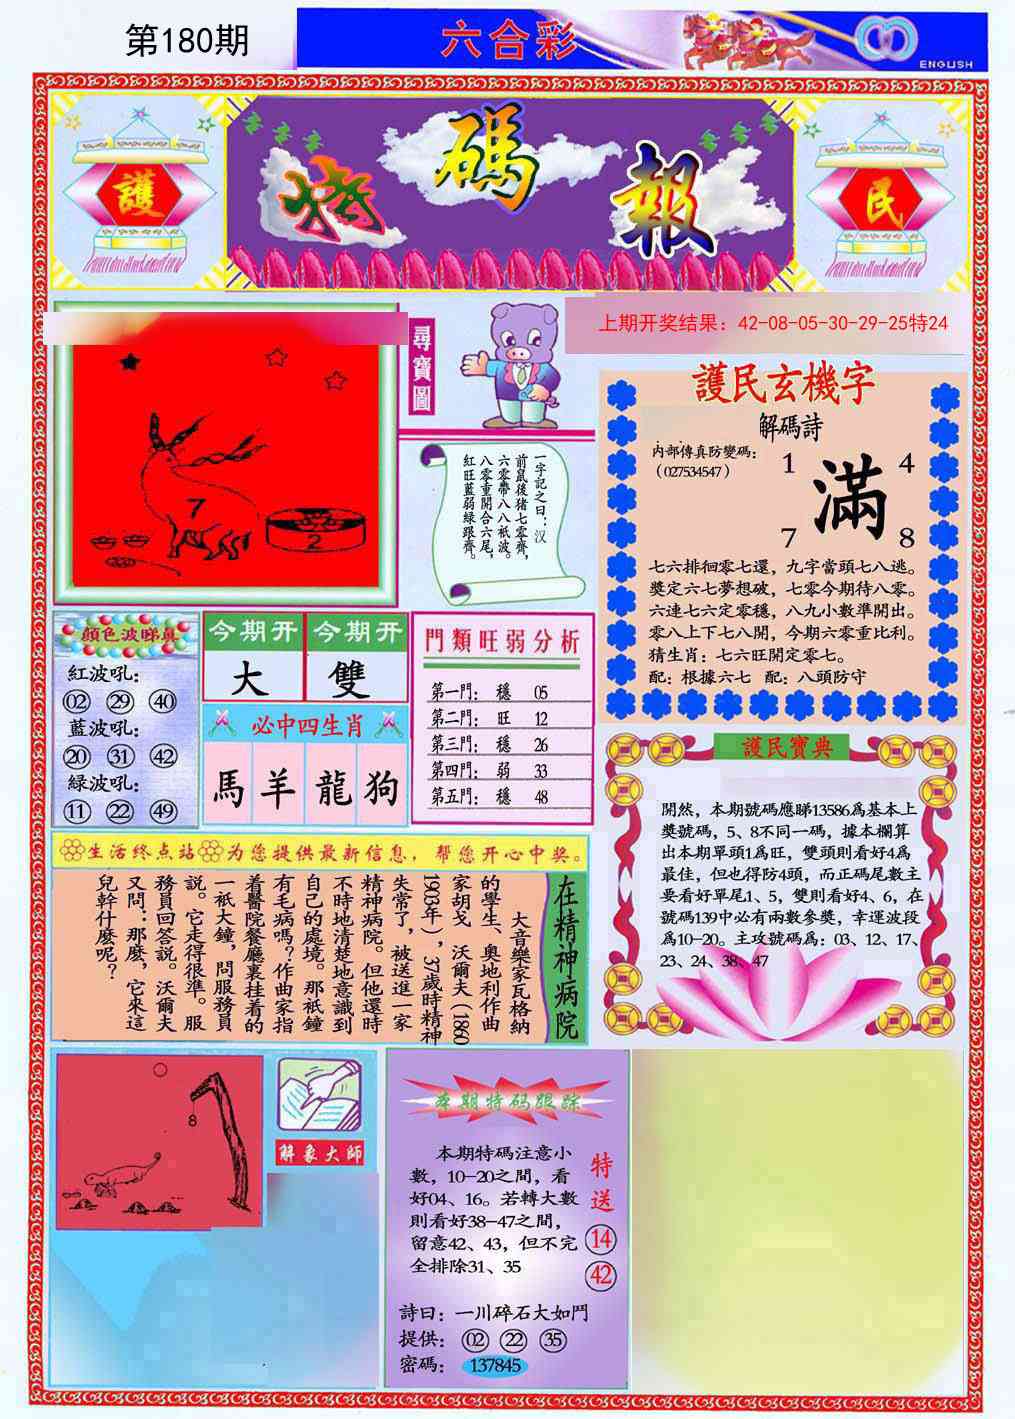 第180期
六合彩
ENGLISH
護
特碼報
民
上期开奖结果：42-08-05-30-29-25特24
尋寶圖
7
2
一字記之曰：汉
前鼠後猪七零齊，
六零帶八八衹波。
八零重開合六尾，
紅旺藍弱緑跟齊。
護民玄機字
解碼詩
内部傳真防變碼：
（027534547）
1
4
滿
7
8
七六排徊零七還，九字當頭七八逃。
獎定六七夢想破，七零今期待八零。
六連七六定零穩，八九小數準開出。
零八上下七八開，今期六零重比利。
猜生肖：七六旺開定零七。
配：根據六七 配：八頭防守
顔色波睇真
紅波吼：
02 29 40
藍波吼：
20 31 42
緑波吼：
11 22 49
今期开 今期开
大 雙
必中四生肖
馬 羊 龍 狗
門類旺弱分析
第一門： 穩 05
第二門： 旺 12
第三門： 穩 26
第四門： 弱 33
第五門： 穩 48
護民寶典
開然，本期號碼應睇13586爲基本上
獎號碼，5、8不同一碼，據本欄算
出本期單頭1爲旺，雙頭則看好4爲
最佳，但也得防4頭，而正碼尾數主
要看好單尾1、5，雙則看好4、6，在
號碼139中必有兩數參獎，幸運波段
爲10-20。主攻號碼爲：03、12、17、
23、24、38、47
生活终点站 为您提供最新信息，帮您开心中奖。
在精神病院
大音樂家瓦格納
的學生、奥地利作曲
家胡戈 沃爾夫（1860
1903年），37歲時精神
失常了，被送進一家
精神病院。但他還時
不時地清楚地意識到
自己的處境。那衹鐘
有毛病嗎？作曲家指
着醫院餐廳裏挂着的
一衹大鐘，問服務員
説。它走得很準。服
務員回答説。沃爾夫
又問：那麽，它來這
兒幹什麽呢？
8
解象大師
本期特码跟踪
本期特碼注意小
數，10-20之間，看
好04、16。若轉大數
則看好38-47之間，
留意42、43，但不完
全排除31、35
特送
14
42
詩曰：一川碎石大如鬥
提供： 02 22 35
密碼： 137845